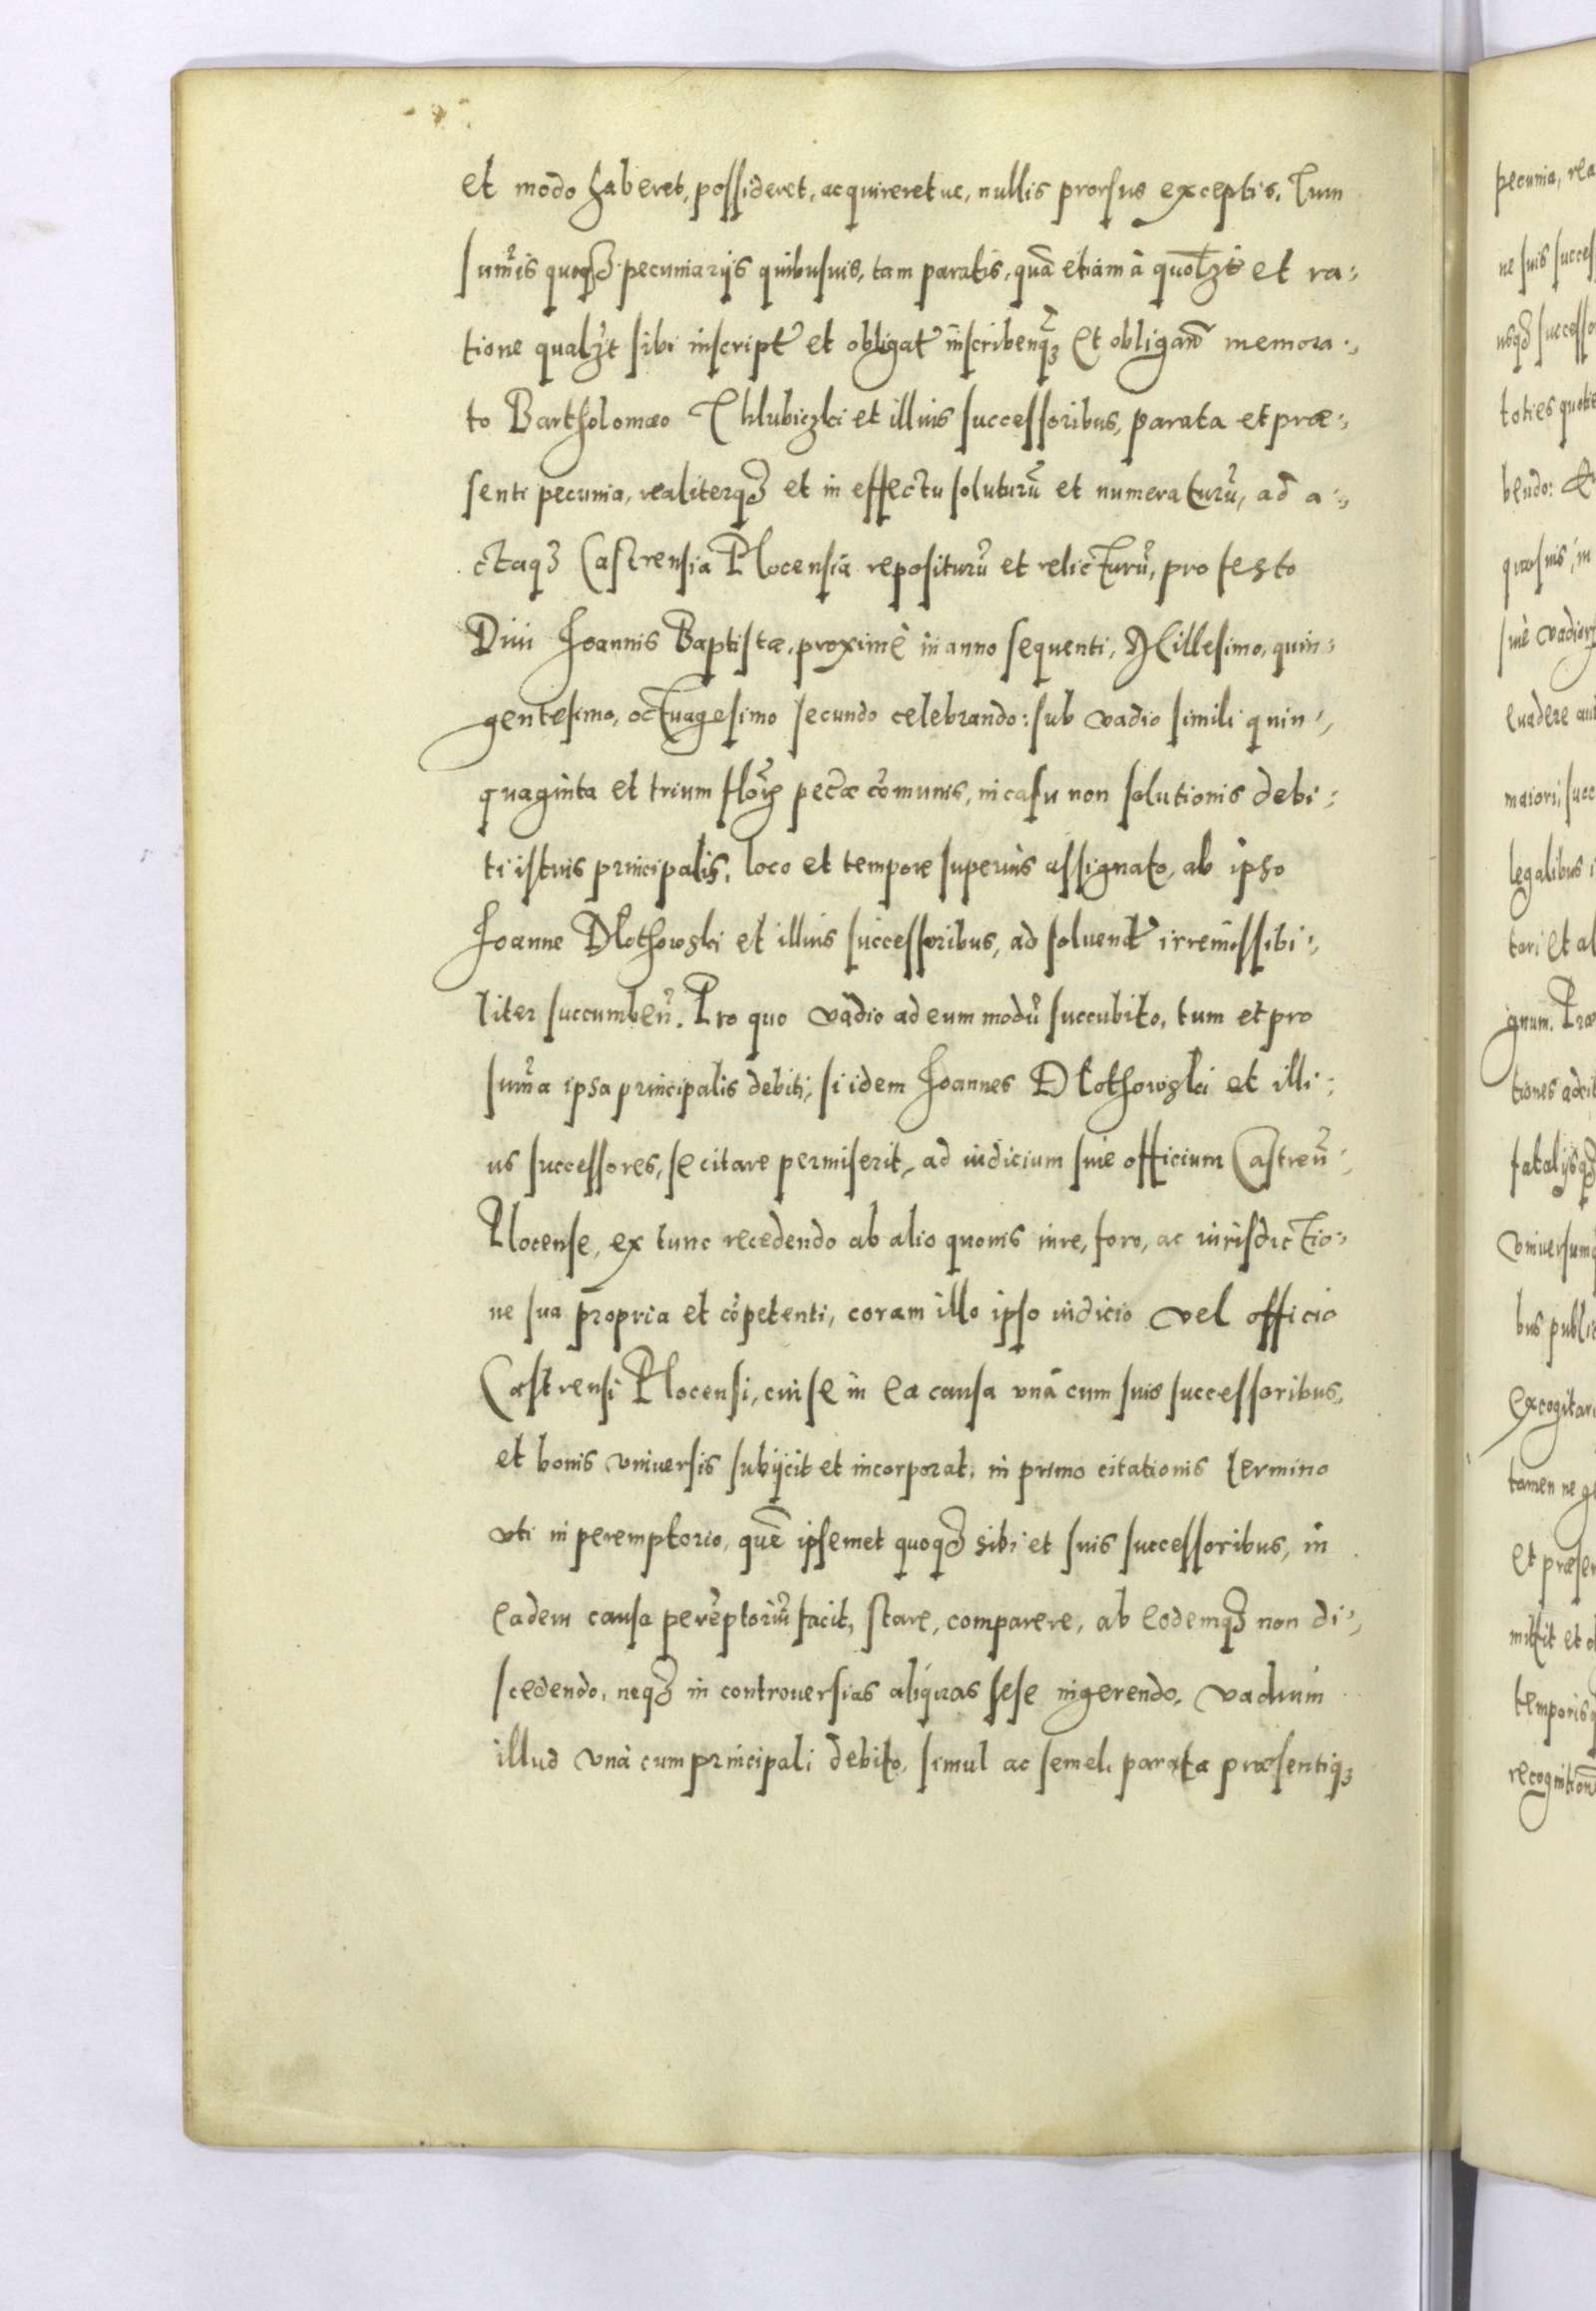 et modo haberet, possideret, acquireretue, nullis prorsus exceptis. Tum
sum̃is quoqȝ pecuniarijs quibusuis, tam paratis, quā etiam à quolȝt et ra:,
tione qualȝt sibi inscript̃ et obligat̃ inscribenq̃ȝ Et obligañ memora:,
to Bartholomæo Chlubiczki et illius successoribus, parata et præ:,
senti pecunia, realiterqȝ et in effectu soluturũ et numeraturũ, ad a:,
ctaqȝ Castrensia Plocensia repositurũ et relicturũ, pro festo
Diui Joannis Baptistæ, proximè in anno sequenti, Millesimo, quin:,
gentesimo, octuagesimo secundo celebrando: sub vadio simili quin:,
quaginta et trium floꝝ pecæ cõmunis, in casu non solutionis debi:,
ti istius principalis, loco et tempore superius assignato, ab ipso
Joanne Dlothowski et illius successoribus, ad soluend̃ irremissibi:,
liter succumbeñ. Pro quo vadio ad eum modũ succubito, tum et pro
sum̃a ipsa principalis debiti, si idem Joannes Dlothowski et illi:
us successores, se citare permiserit, ad iudicium siue officium Castreñ:
Plocense, ex tunc recedendo ab alio quouis iure, foro, ac iurisdictio:,
ne sua propria et cõpetenti, coram illo ipso iudicio vel officio
Castrensi Plocensi, cui se in ea causa vnà cum suis successoribus,
et bonis vniuersis subijcit et incorporat, in primo citationis termino
vti in peremptorio, quē ipsemet quoqȝ sibi et suis successoribus, in
eadem causa perẽptoriũ facit, stare, comparere, ab eodemqȝ non di:,
scedendo, neqȝ in controuersias aliquas sese ingerendo, vadium
illud vnà cum principali debito, simul ac semel, parata præsentiqȝ
pecunia, rea
ne suis succes
usqȝ successo
toties quotie
bendo:
quosuis, in
siuè vadior
euadere aut
maiori, succ
legalibus i
tari et al
gnum. Præ
tiones adcit
fatalijsqȝ
vniuersumq
bus publi
excogitar
tamen ne ge
et præsen
mittit et o
temporisq
recognition